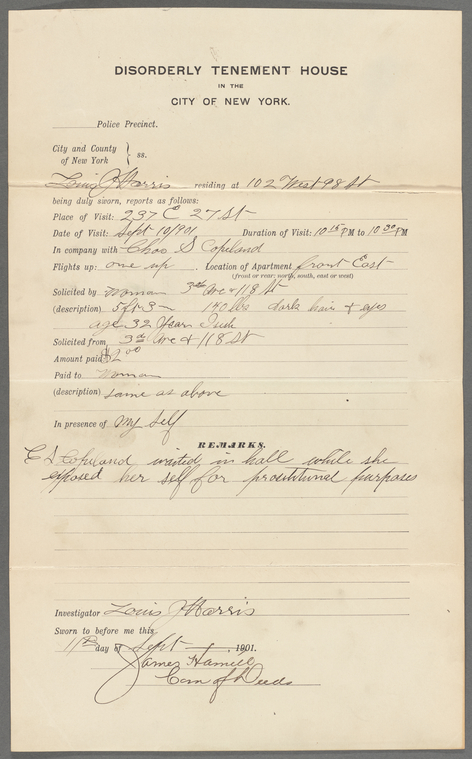 DISORDERLY TENEMENT HOUSE
IN THE
CITY OF NEW YORK.
Police Precinct.
City and County
of New York } ss.
Louis J Harris residing at 102 West 98 St
being duly sworn, reports as follows:
Place of Visit: 237 E 27 St
Date of Visit: Sept 10/901 Duration of Visit: 10 15 PM to 10 30 PM
In company with Chas S Copeland
Flights up: one up Location of Apartment front East
(front or rear; north, south, east or west)
Solicited by Woman 3rd Ave & 118 St
(description) 5 ft 3 — 140 lbs dark hair & eyes
age 32 Years
Solicited from 3rd Ave & 118 St
Amount paid $2 00
Paid to Woman
(description) same as above
In presence of My Self
REMARKS.
C S Copeland waited in hall while she
exposed her self for prostitutional purposes
Investigator Louis J Harris
Sworn to before me this
11th day of Sept 1901.
James Hamill
Com of Deeds